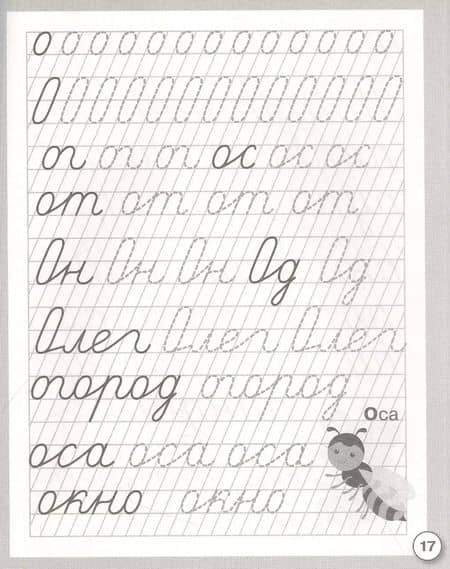 о о о о о о о о о о о о о
О О О О О О О О О О О О О О О
ог ог ог ос ос ос
от от от от
Он Он Он Од Од
Олег Олег Олег
огород огород
оса
оса оса оса
окно окно
17